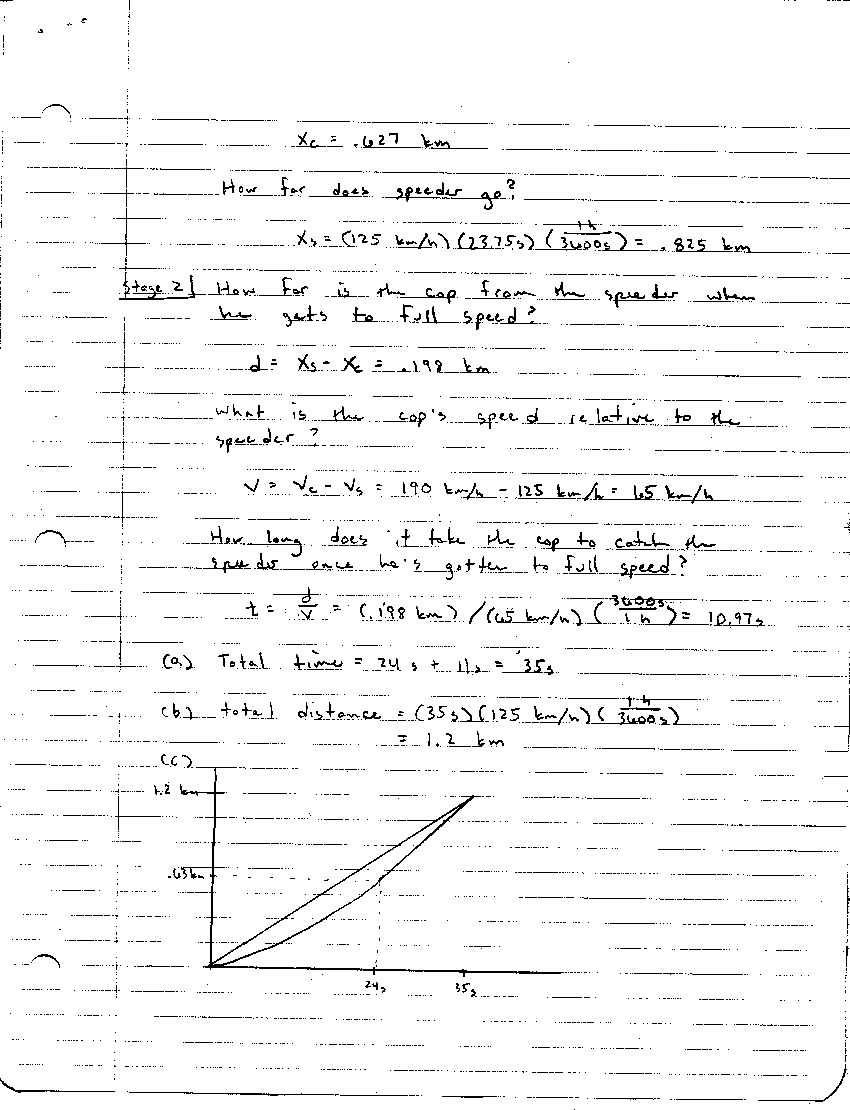 Xc = .627 km
How far does speeder go?
Xs = (125 km/h)(23.75s)(1h/3600s) = .825 km
Stage 2] How far is the cop from the speeder when
he gets to full speed?
d = Xs - Xc = .198 km
What is the cop's speed relative to the
speeder?
V = Vc - Vs = 190 km/h - 125 km/h = 65 km/h
How long does it take the cop to catch the
speeder once he's gotten to full speed?
t = d/v = (.198 km)/(65 km/h)(3600s/1h) = 10.97s
(a) Total time = 24s + 11s = 35s
(b) total distance = (35s)(125 km/h)(1h/3600s)
= 1.2 km
(c)
1.2 km
.63km
24s 35s